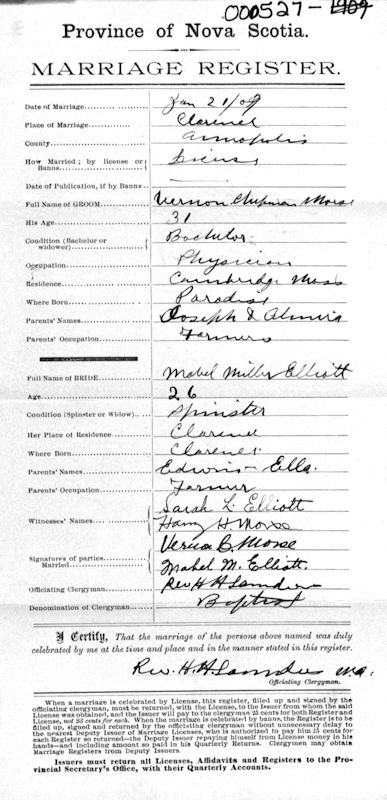 000527-1909
Province of Nova Scotia.
MARRIAGE REGISTER.
Date of Marriage Jan 21/09
Place of Marriage Clarence
County Annapolis
How Married; by license or Banns License
Date of Publication, if by Banns —
Full Name of GROOM Vernon Chipman Morse
His Age 31
Condition (Bachelor or widower) Bachelor
Occupation Physician
Residence Cambridge Mass
Where Born Paradise
Parents' Names Joseph & Almira
Parents' Occupation Farmers
Full Name of BRIDE Mabel Miller Elliott
Age 26
Condition (Spinster or Widow) Spinster
Her Place of Residence Clarence
Where Born Clarence
Parents' Names Edwin - Ella.
Parents' Occupation Farmer
Witnesses' Names Sarah L. Elliott
Harry H Morse
Signatures of parties Married Vernon Morse
Mabel M. Elliott.
Officiating Clergyman Rev H H Saunders
Denomination of Clergyman Baptist
I Certify, That the marriage of the persons above named was duly
celebrated by me at the time and place and in the manner stated in this register.
Rev. H. H. Saunders M.A.
Officiating Clergyman.
When a marriage is celebrated by License, this register, filled up and signed by the
officiating clergyman, must be returned, with the License, to the Issuer from whom the said
License was obtained, and the Issuer will pay to the clergyman 25 cents for both Register and
License, not 25 cents for each. When the marriage is celebrated by banns, the Register is to be
filled up, signed and returned by the officiating clergyman without unnecessary delay to
the nearest Deputy Issuer of Marriage Licenses, who is authorized to pay him 25 cents for
each Register so returned—the Deputy Issuer repaying himself from License money in his
hands—and including amount so paid in his Quarterly Returns. Clergymen may obtain
Marriage Registers from Deputy Issuers.
Issuers must return all Licenses, Affidavits and Registers to the Pro-
vincial Secretary's Office, with their Quarterly Accounts.